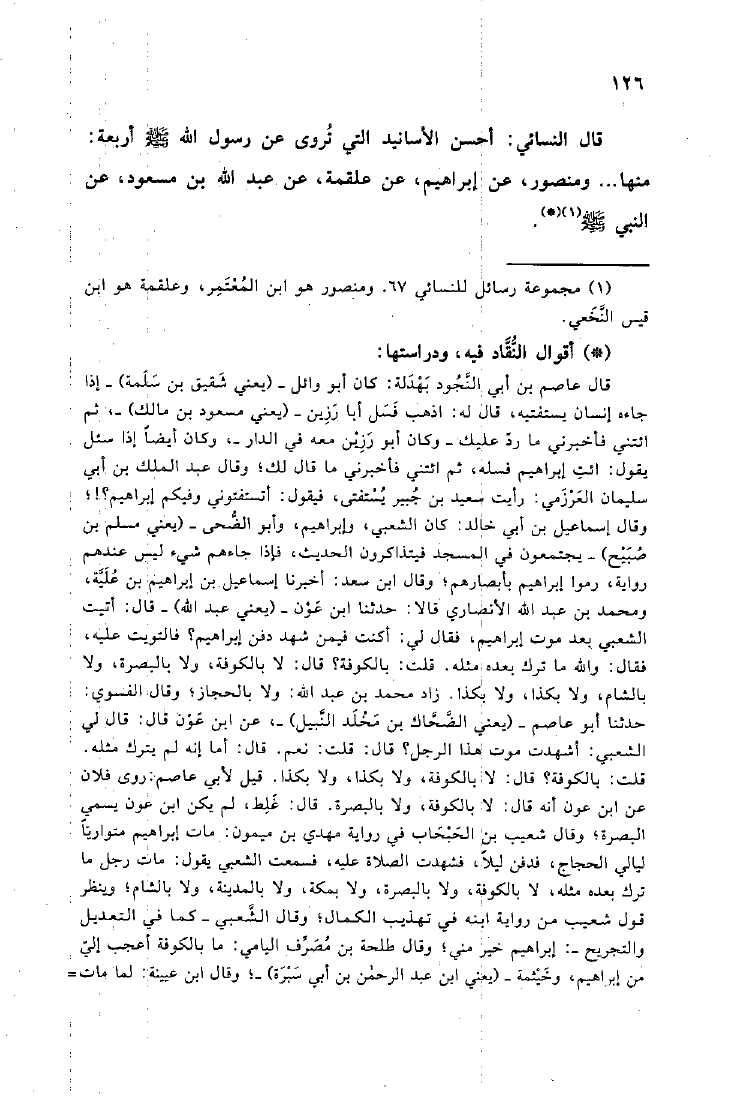 ١٢٦
قال النسائي: أحسن الأسانيد التي تُروى عن رسول الله ﷺ أربعة:
منها... ومنصور، عن إبراهيم، عن علقمة، عن عبد الله بن مسعود، عن
النبي ﷺ(١)(*).
(١) مجموعة رسائل للنسائي ٦٧. ومنصور هو ابن المُعْتَمِر، وعلقمة هو ابن
قيس النَّخَعي.
(*) أقوال النُّقَّاد فيه، ودراستها:
قال عاصم بن أبي النَّجُود بَهْدَلة: كان أبو وائل ـ (يعني شَقيق بن سَلَمة) ـ إذا
جاءه إنسان يستفتيه، قال له: اذهب فَسَل أبا رَزِين ـ (يعني مسعود بن مالك) ـ، ثم
ائتني فأخبرني ما ردّ عليك ـ وكان أبو رَزِيْن معه في الدار ـ، وكان أيضاً إذا سئل
يقول: ائتِ إبراهيم فسله، ثم ائتني فأخبرني ما قال لك؛ وقال عبد الملك بن أبي
سليمان العَرْزَمي: رأيت سعيد بن جُبير يُسْتفتى، فيقول: أتستفتوني وفيكم إبراهيم؟!؛
وقال إسماعيل بن أبي خالد: كان الشعبي، وإبراهيم، وأبو الضُّحى ـ (يعني مسلم بن
صُبَيْح) ـ يجتمعون في المسجد فيتذاكرون الحديث، فإذا جاءهم شيء ليس عندهم
رواية، رموا إبراهيم بأبصارهم؛ وقال ابن سعد: أخبرنا إسماعيل بن إبراهيم بن عُلَيَّة،
ومحمد بن عبد الله الأنصاري قالا: حدثنا ابن عَوْن ـ (يعني عبد الله) ـ قال: أتيت
الشعبي بعد موت إبراهيم، فقال لي: أكنت فيمن شهد دفن إبراهيم؟ فالتويت عليه،
فقال: والله ما ترك بعده مثله. قلت: بالكوفة؟ قال: لا بالكوفة، ولا بالبصرة، ولا
بالشام، ولا بكذا، ولا بكذا. زاد محمد بن عبد الله: ولا بالحجاز؛ وقال الفسوي:
حدثنا أبو عاصم ـ (يعني الضَّحاك بن مَخْلَد النَّبيل) ـ، عن ابن عَوْن قال: قال لي
الشعبي: أشهدت موت هذا الرجل؟ قال: قلت: نعم. قال: أما إنه لم يترك مثله.
قلت: بالكوفة؟ قال: لا بالكوفة، ولا بكذا، ولا بكذا. قيل لأبي عاصم: روى فلان
عن ابن عون أنه قال: لا بالكوفة، ولا بالبصرة. قال: غَلِط، لم يكن ابن عون يسمي
البصرة؛ وقال شعيب بن الحَبْحَاب في رواية مهدي بن ميمون: مات إبراهيم متوارياً
ليالي الحجاج، فدفن ليلاً، فشهدت الصلاة عليه، فسمعت الشعبي يقول: مات رجل ما
ترك بعده مثله، لا بالكوفة، ولا بالبصرة، ولا بمكة، ولا بالمدينة، ولا بالشام؛ وينظر
قول شعيب من رواية ابنه في تهذيب الكمال؛ وقال الشَّعبي ـ كما في التعديل
والتجريح ـ: إبراهيم خير مني؛ وقال طلحة بن مُصَرِّف اليامي: ما بالكوفة أعجب إليّ
من إبراهيم، وخَيْثمة ـ (يعني ابن عبد الرحمٰن بن أبي سَبْرَة) ـ؛ وقال ابن عيينة: لما مات=